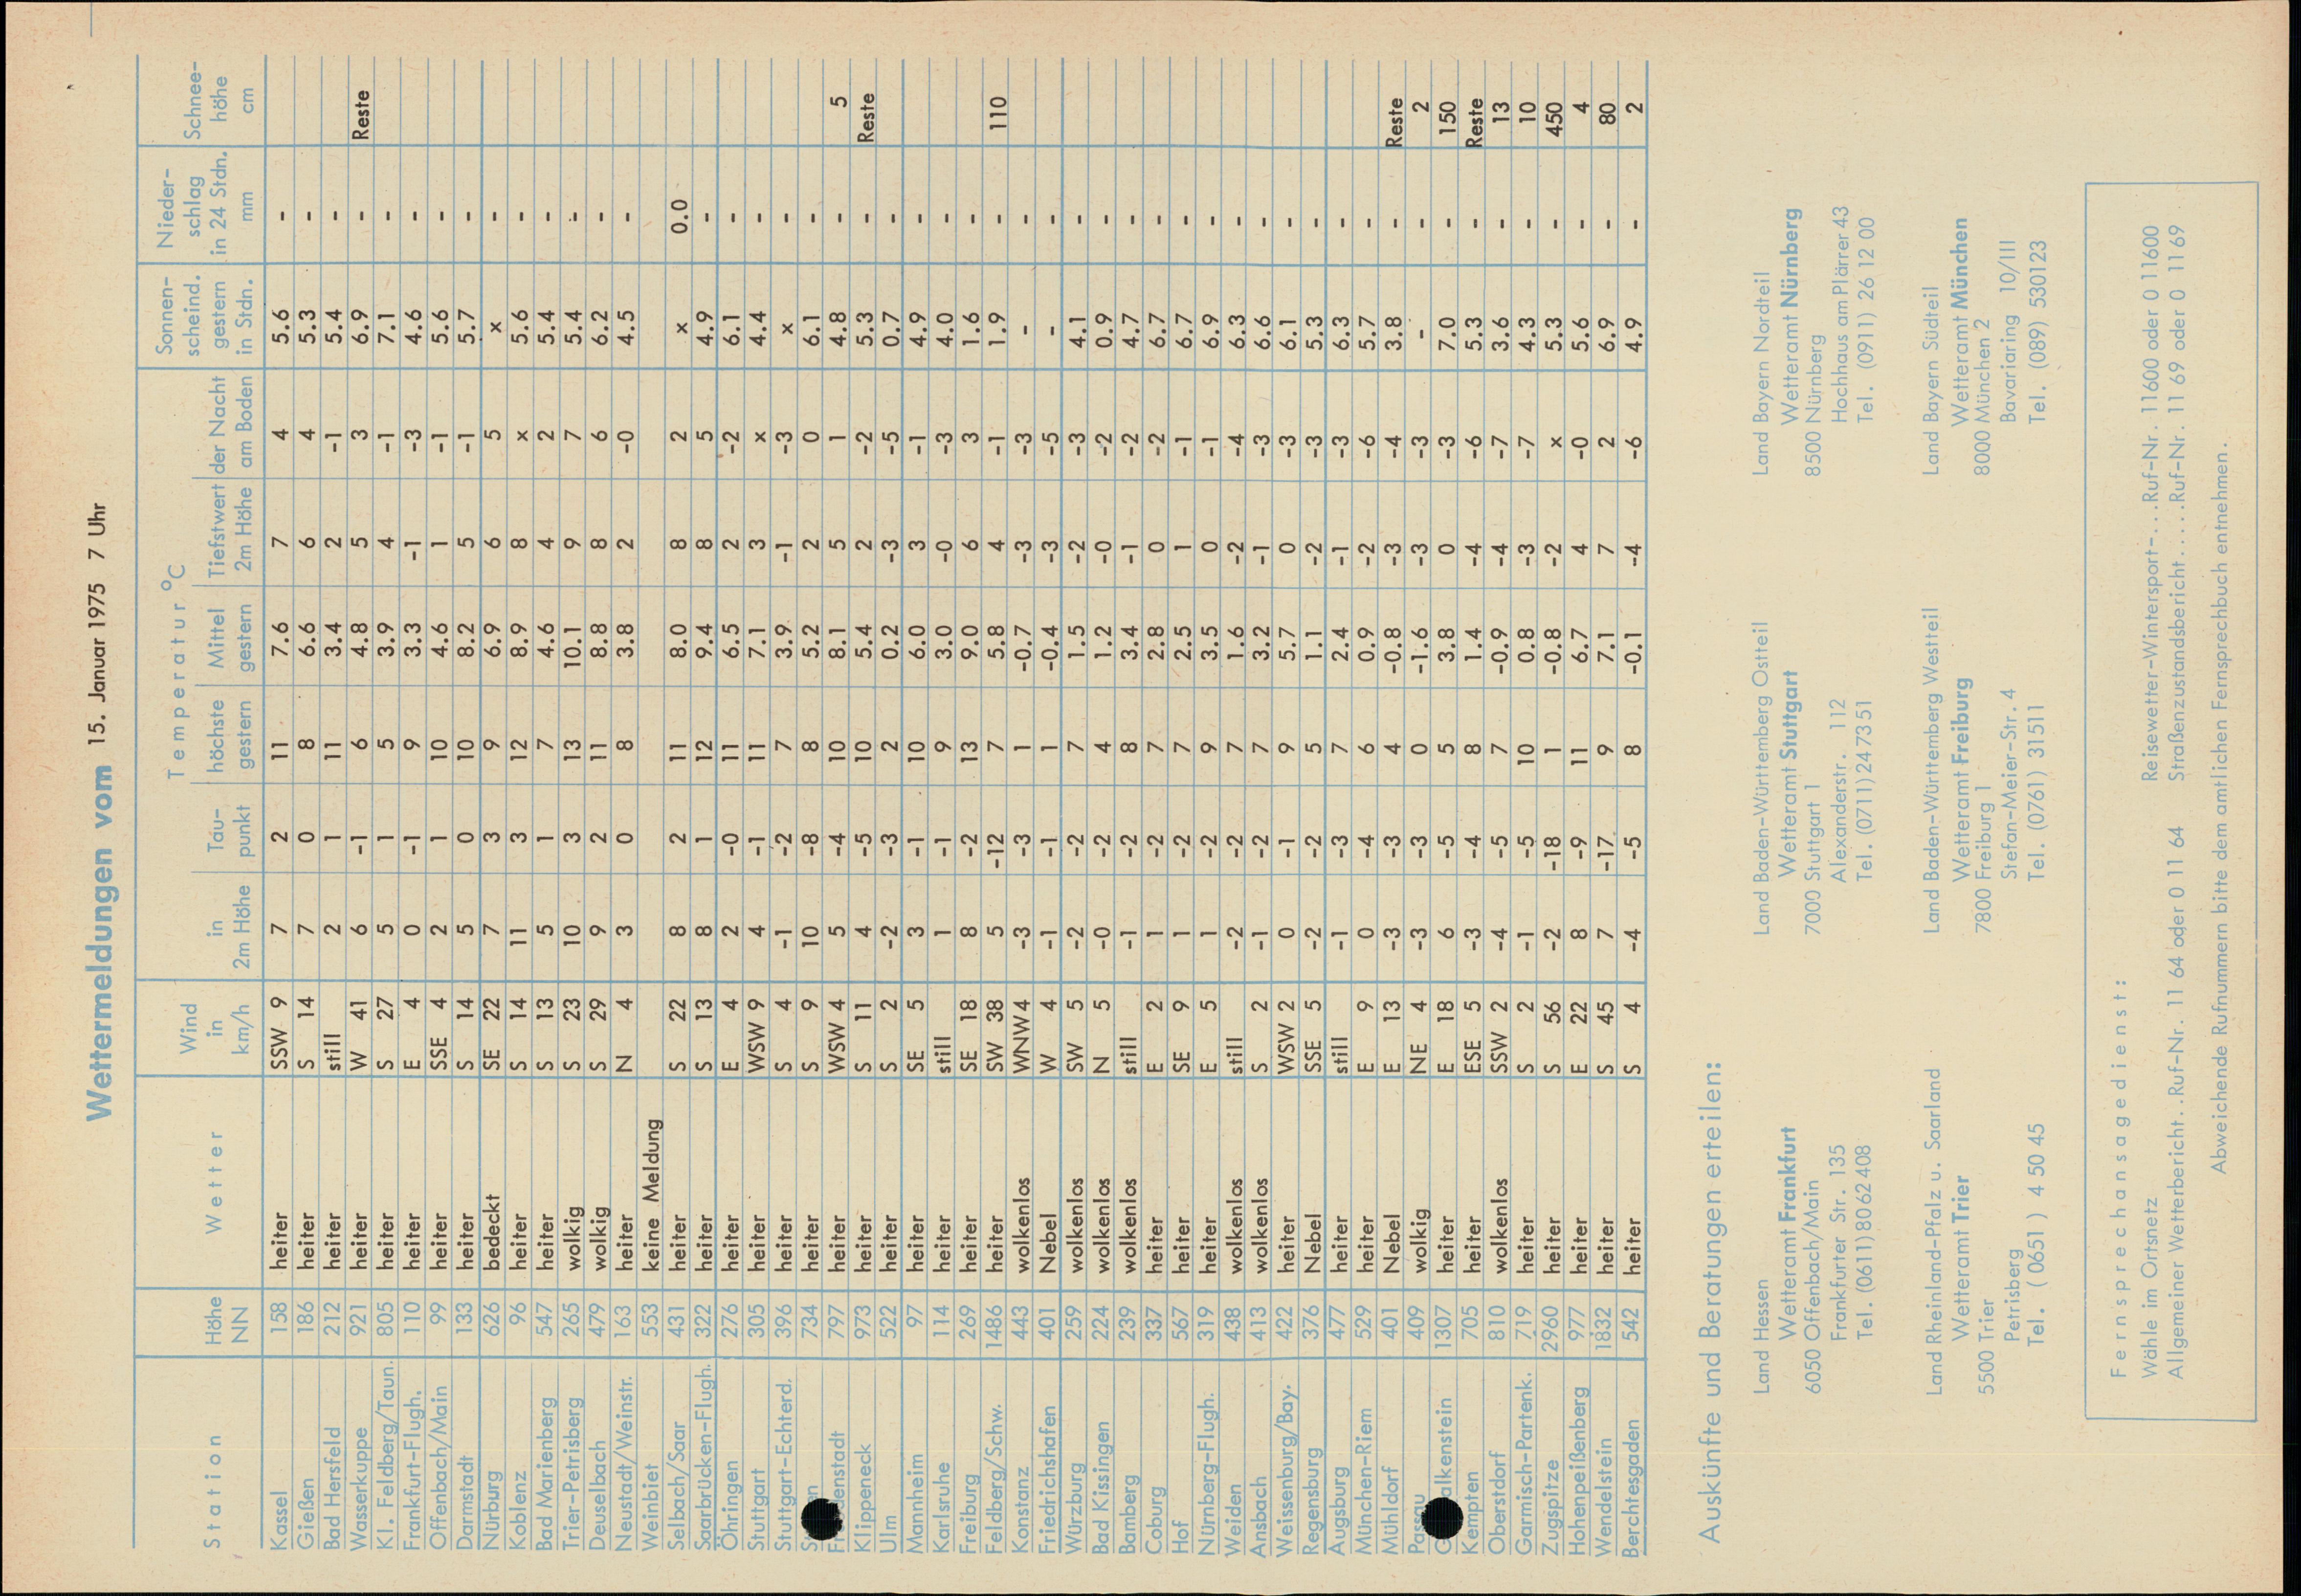 Wettermeldungen vom 15. Januar 1975 7 Uhr
Station Höhe NN Wetter Wind in km/h Temperatur °C in 2m Höhe Tau-punkt höchste gestern Mittel gestern Tiefstwert der Nacht 2m Höhe am Boden Sonnen-scheind. gestern in Stdn. Nieder-schlag in 24 Stdn. mm Schnee-höhe cm
Kassel 158 heiter SSW 9 7 2 11 7.6 7 4 5.6 -
Gießen 186 heiter S 14 7 0 8 6.6 6 4 5.3 -
Bad Hersfeld 212 heiter still 2 1 11 3.4 2 -1 5.4 -
Wasserkuppe 921 heiter W 41 6 -1 6 4.8 5 3 6.9 - Reste
Kl. Feldberg/Taun. 805 heiter S 27 5 1 5 3.9 4 -1 7.1 -
Frankfurt-Flugh. 110 heiter E 4 0 -1 9 3.3 -1 -3 4.6 -
Offenbach/Main 99 heiter SSE 4 2 1 10 4.6 1 -1 5.6 -
Darmstadt 133 heiter S 14 5 0 10 8.2 5 -1 5.7 -
Nürburg 626 bedeckt SE 22 7 3 9 6.9 6 5 x -
Koblenz 96 heiter S 14 11 3 12 8.9 8 x 5.6 -
Bad Marienberg 547 heiter S 13 5 1 7 4.6 4 2 5.4 -
Trier-Petrisberg 265 wolkig S 23 10 3 13 10.1 9 7 5.4 -
Deuselbach 479 wolkig S 29 9 2 11 8.8 8 6 6.2 -
Neustadt/Weinstr. 163 heiter N 4 3 0 8 3.8 2 -0 4.5 -
Weinbiet 553 keine Meldung
Selbach/Saar 431 heiter S 22 8 2 11 8.0 8 2 x 0.0
Saarbrücken-Flugh. 322 heiter S 13 8 1 12 9.4 8 5 4.9 -
Öhringen 276 heiter E 4 2 -0 11 6.5 2 -2 6.1 -
Stuttgart 305 heiter WSW 9 4 -1 11 7.1 3 x 4.4 -
Stuttgart-Echterd. 396 heiter S 4 -1 -2 7 3.9 -1 -3 x -
734 heiter S 9 10 -8 8 5.2 2 0 6.1 -
denstadt 797 heiter WSW 4 5 -4 10 8.1 5 1 4.8 - 5
Klippeneck 973 heiter S 11 4 -5 10 5.4 2 -2 5.3 - Reste
Ulm 522 heiter S 2 -2 -3 2 0.2 -3 -5 0.7 -
Mannheim 97 heiter SE 5 3 -1 10 6.0 3 -1 4.9 -
Karlsruhe 114 heiter still 1 -1 9 3.0 -0 -3 4.0 -
Freiburg 269 heiter SE 18 8 -2 13 9.0 6 3 1.6 -
Feldberg/Schw. 1486 heiter SW 38 5 -12 7 5.8 4 -1 1.9 - 110
Konstanz 443 wolkenlos WNW 4 -3 -3 1 -0.7 -3 -3 - -
Friedrichshafen 401 Nebel W 4 -1 -1 1 -0.4 -3 -5 - -
Würzburg 259 wolkenlos SW 5 -2 -2 7 1.5 -2 -3 4.1 -
Bad Kissingen 224 wolkenlos N 5 -0 -2 4 1.2 -0 -2 0.9 -
Bamberg 239 wolkenlos still -1 -2 8 3.4 -1 -2 4.7 -
Coburg 337 heiter E 2 1 -2 7 2.8 0 -2 6.7 -
Hof 567 heiter SE 9 1 -2 7 2.5 1 -1 6.7 -
Nürnberg-Flugh. 319 heiter E 5 1 -2 9 3.5 0 -1 6.9 -
Weiden 438 wolkenlos still -2 -2 7 1.6 -2 -4 6.3 -
Ansbach 413 wolkenlos S 2 -1 -2 7 3.2 -1 -3 6.6 -
Weissenburg/Bay. 422 heiter WSW 2 0 -1 9 5.7 0 -3 6.1 -
Regensburg 376 Nebel SSE 5 -2 -2 5 1.1 -2 -3 5.3 -
Augsburg 477 heiter still -1 -3 7 2.4 -1 -3 6.3 -
München-Riem 529 heiter E 9 0 -4 6 0.9 -2 -6 5.7 -
Mühldorf 401 Nebel E 13 -3 -3 4 -0.8 -3 -4 3.8 - Reste
Passau 409 wolkig NE 4 -3 -3 0 -1.6 -3 -3 - - 2
G alkenstein 1307 heiter E 18 6 -5 5 3.8 0 -3 7.0 - 150
Kempten 705 heiter ESE 5 -3 -4 8 1.4 -4 -6 5.3 - Reste
Oberstdorf 810 wolkenlos SSW 2 -4 -5 7 -0.9 -4 -7 3.6 - 13
Garmisch-Partenk. 719 heiter S 2 -1 -5 10 0.8 -3 -7 4.3 - 10
Zugspitze 2960 heiter S 56 -2 -18 1 -0.8 -2 x 5.3 - 450
Hohenpeißenberg 977 heiter E 22 8 -9 11 6.7 4 -0 5.6 - 4
Wendelstein 1832 heiter S 45 7 -17 9 7.1 7 2 6.9 - 80
Berchtesgaden 542 heiter S 4 -4 -5 8 -0.1 -4 -6 4.9 - 2
Auskünfte und Beratungen erteilen:
Land Hessen
Wetteramt Frankfurt
6050 Offenbach/Main
Frankfurter Str. 135
Tel. (0611) 80 62 408
Land Baden-Württemberg Ostteil
Wetteramt Stuttgart
7000 Stuttgart 1
Alexanderstr. 112
Tel. (0711) 24 73 51
Land Bayern Nordteil
Wetteramt Nürnberg
8500 Nürnberg
Hochhaus am Plärrer 43
Tel. (0911) 26 12 00
Land Rheinland-Pfalz u. Saarland
Wetteramt Trier
5500 Trier
Petrisberg
Tel. ( 0651 ) 4 50 45
Land Baden-Württemberg Westteil
Wetteramt Freiburg
7800 Freiburg 1
Stefan-Meier-Str. 4
Tel. (0761) 31511
Land Bayern Südteil
Wetteramt München
8000 München 2
Bavariaring 10/III
Tel. (089) 530123
Fernsprechansagedienst:
Wähle im Ortsnetz Reisewetter-Wintersport-...Ruf-Nr. 11600 oder 0 11600
Allgemeiner Wetterbericht..Ruf-Nr. 11 64 oder 0 11 64 Straßenzustandsbericht.....Ruf-Nr. 11 69 oder 0 11 69
Abweichende Rufnummern bitte dem amtlichen Fernsprechbuch entnehmen.